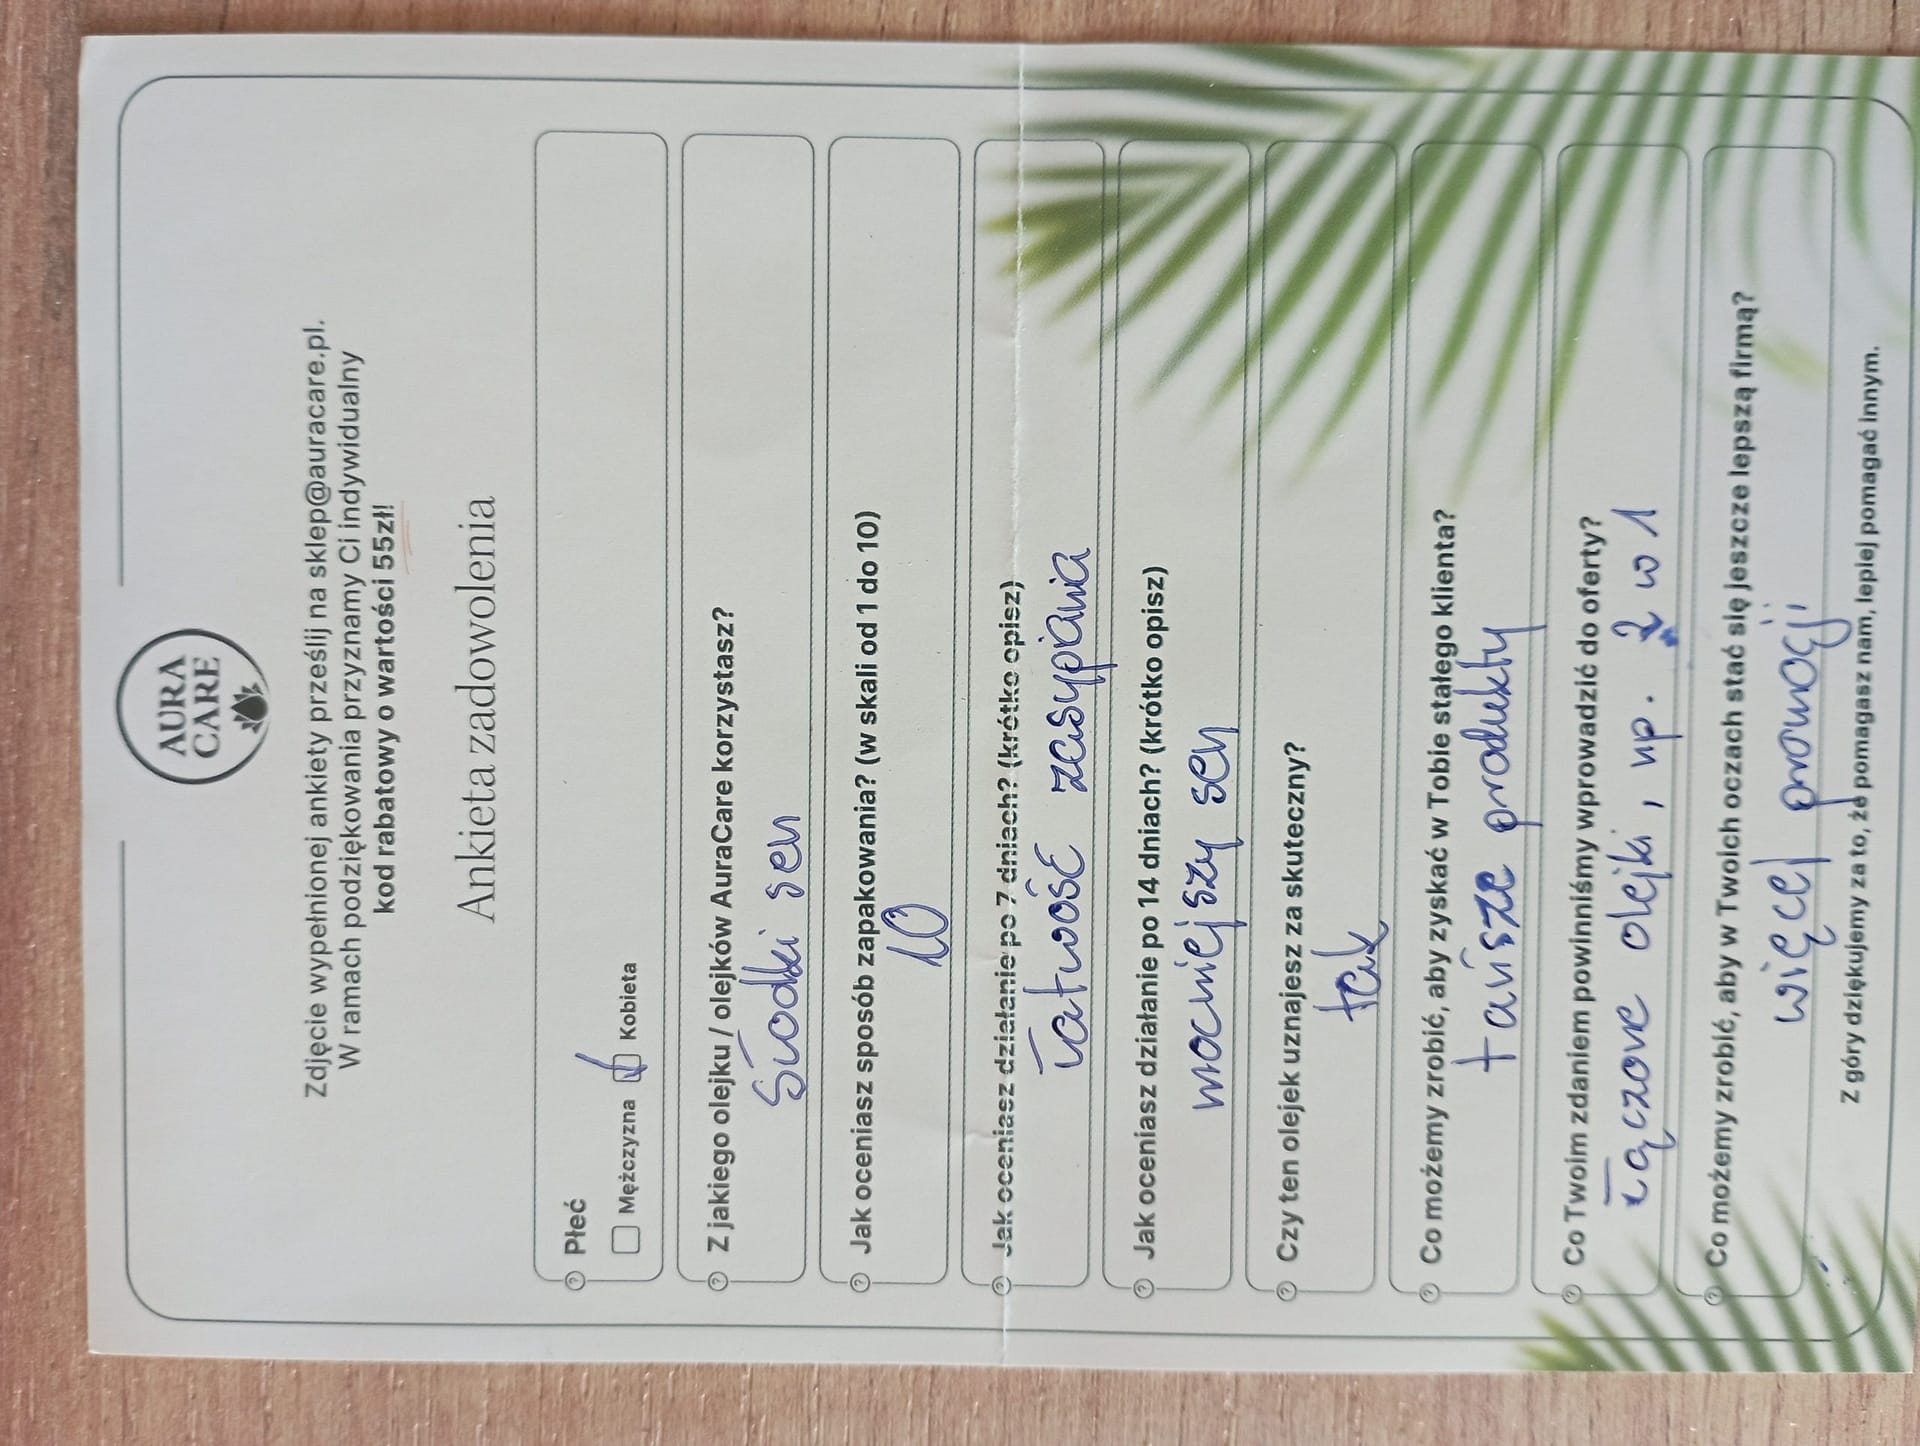 AURA
CARE
Zdjęcie wypełnionej ankiety prześlij na sklep@auracare.pl.
W ramach podziękowania przyznamy Ci indywidualny
kod rabatowy o wartości 55zł!
Ankieta zadowolenia
Płeć
Mężczyzna Kobieta
Z jakiego olejku / olejków AuraCare korzystasz?
Słodki sen
Jak oceniasz sposób zapakowania? (w skali od 1 do 10)
10
Jak oceniasz działanie po 7 dniach? (krótko opisz)
łatwość zasypiania
Jak oceniasz działanie po 14 dniach? (krótko opisz)
mocniejszy sen
Czy ten olejek uznajesz za skuteczny?
tak
Co możemy zrobić, aby zyskać w Tobie stałego klienta?
tańsze produkty
Co Twoim zdaniem powinniśmy wprowadzić do oferty?
łączone olejki, np. 2 w 1
Co możemy zrobić, aby w Twoich oczach stać się jeszcze lepszą firmą?
więcej promocji
Z góry dziękujemy za to, że pomagasz nam, lepiej pomagać innym.